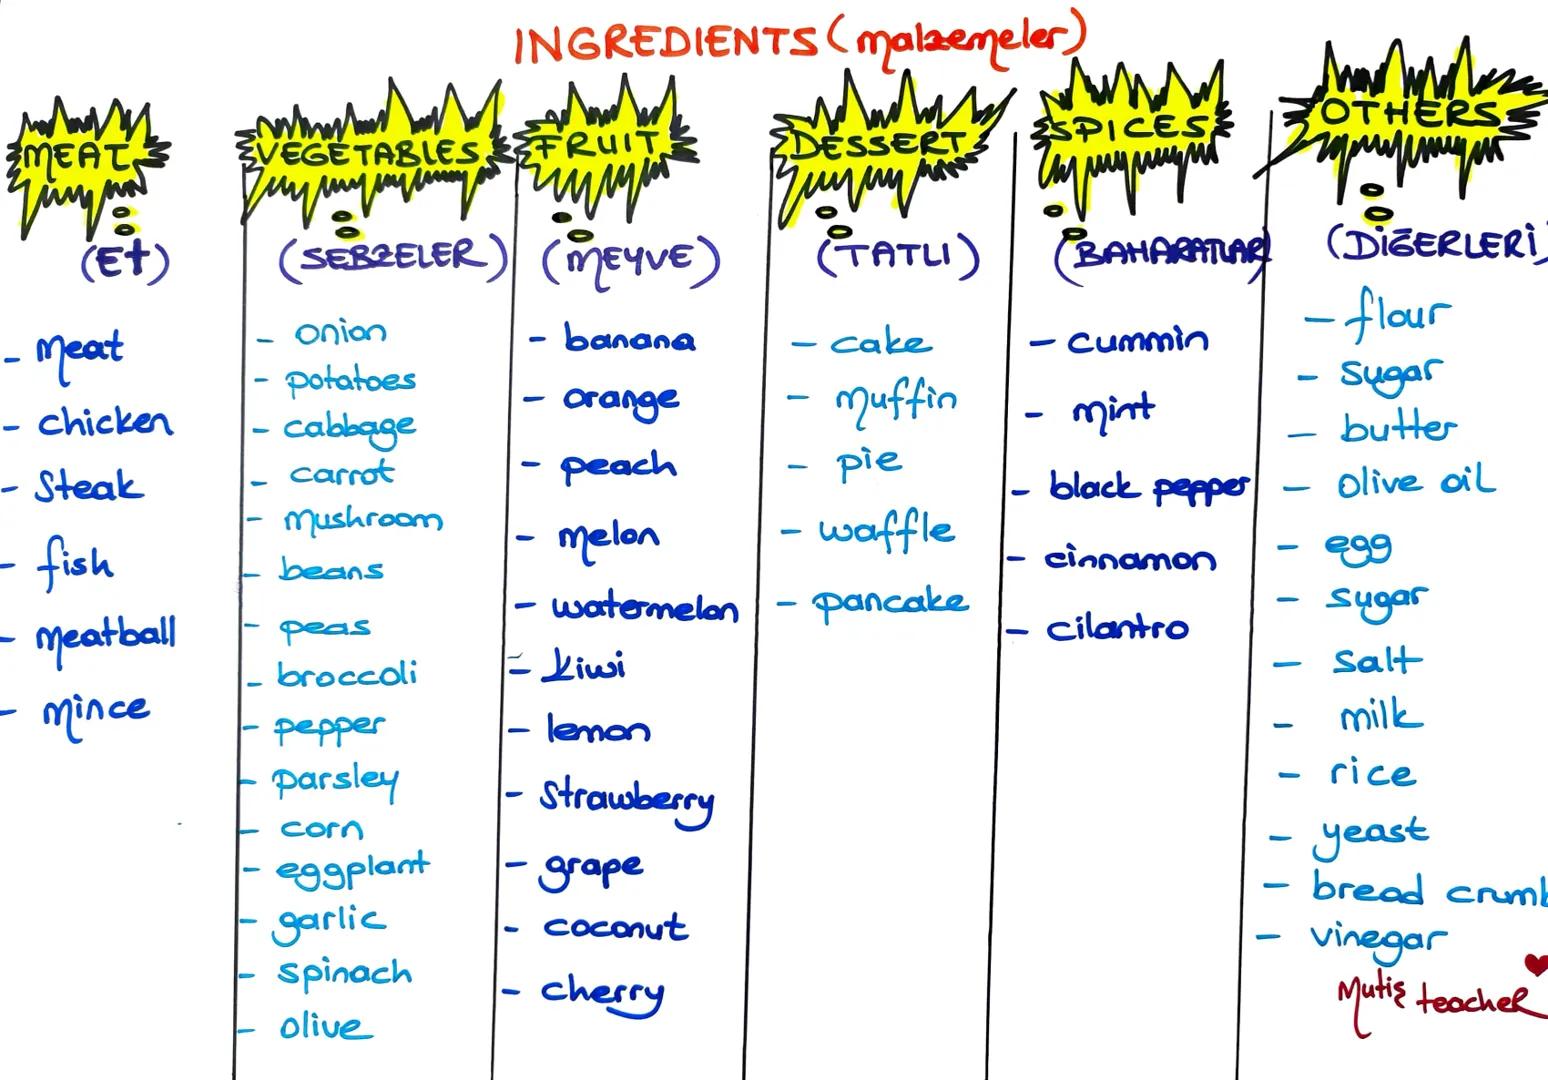 INGREDIENTS (malzemeler)
MEAT
(Et)
- meat
- chicken
- steak
- fish
- meatball
- mince
VEGETABLES
(SEBZELER)
- onion
- potatoes
- cabbage
- carrot
- mushroom
- beans
- peas
- broccoli
- pepper
- parsley
- corn
- eggplant
- garlic
- spinach
- olive
FRUIT
(MEYVE)
- banana
- orange
- peach
- melon
- watermelon
- kiwi
- lemon
- strawberry
- grape
- coconut
- cherry
DESSERT
(TATLI)
- cake
- muffin
- pie
- waffle
- pancake
SPICES
(BAHARATLAR)
- cummin
- mint
- black pepper
- cinnamon
- cilantro
OTHERS
(DİĞERLERİ)
- flour
- sugar
- butter
- olive oil
- egg
- sugar
- salt
- milk
- rice
- yeast
- bread crumb
- vinegar
Mutiş teacher